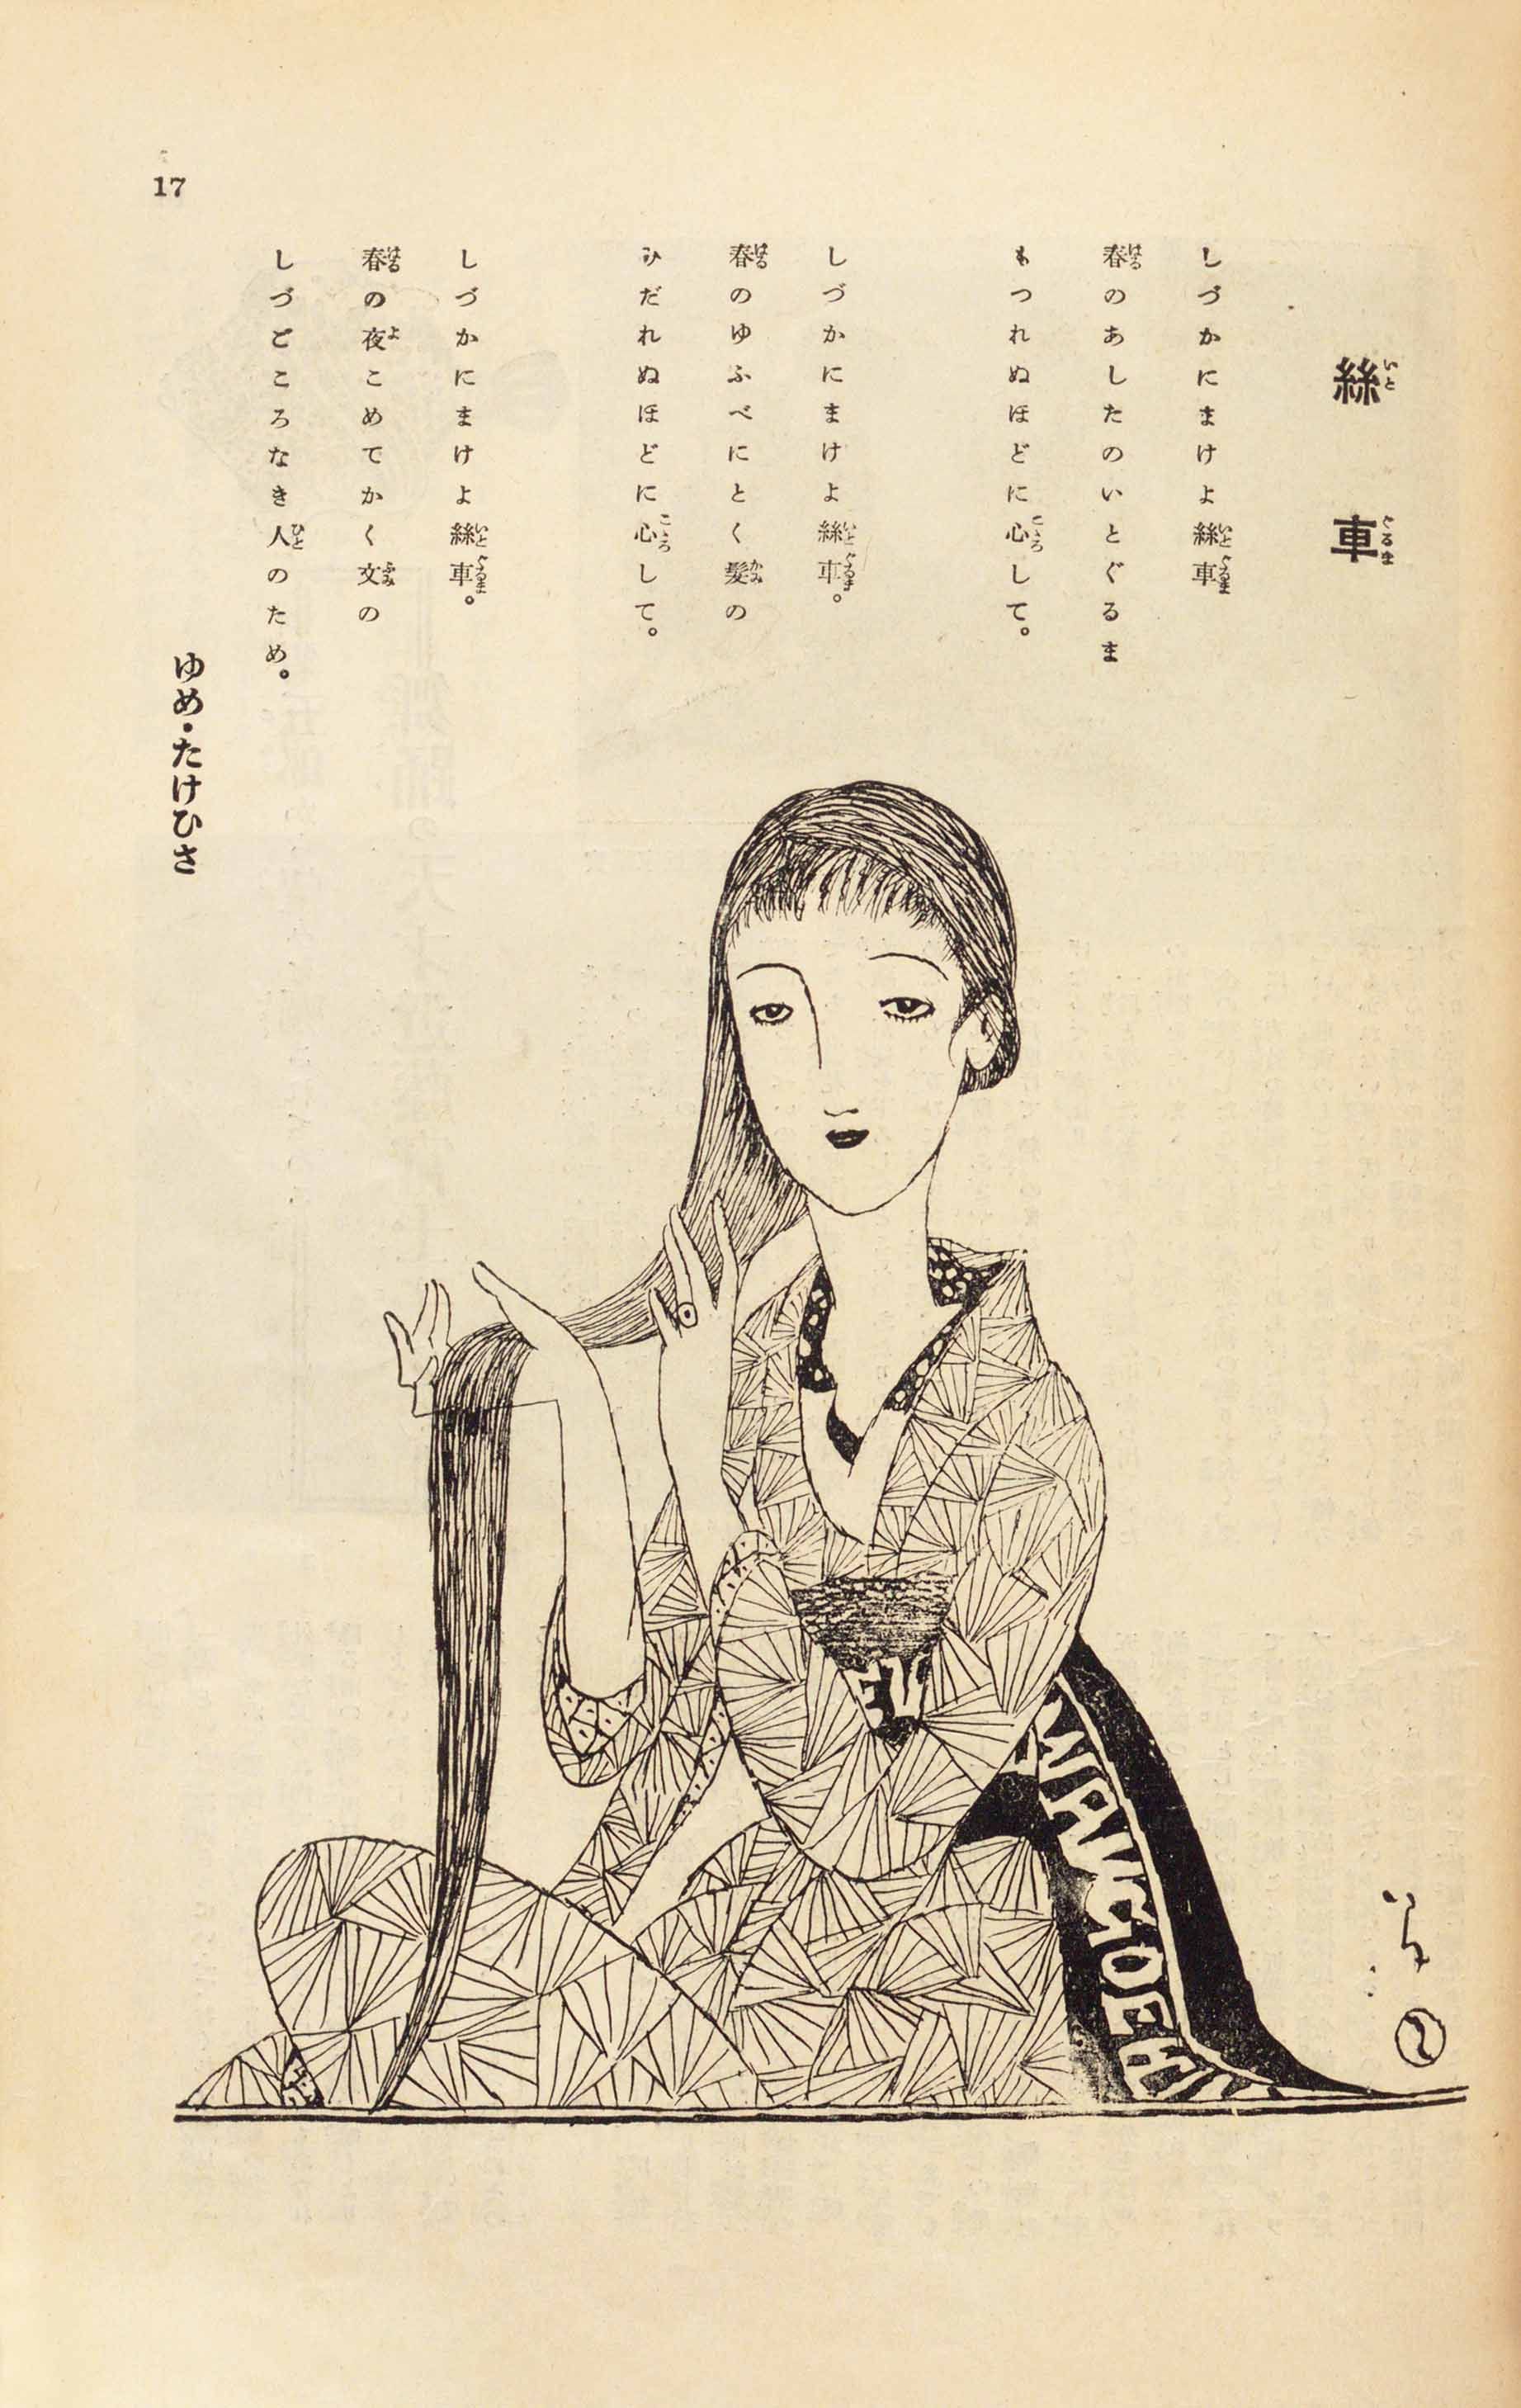 絲車
しづかにまけよ絲車
春のあしたのいとぐるま
もつれぬほどに心して。
しづかにまけよ絲車。
春のゆふべにとく髮の
ひだれぬほどに心して。
しづかにまけよ絲車。
春の夜こめてかく文の
しづごころなき人のため。
ゆめ・たけひさ
17